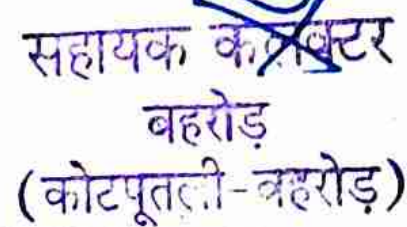 सहायक कलक्टर
बहरोड़
(कोटपूतली-बहरोड़)